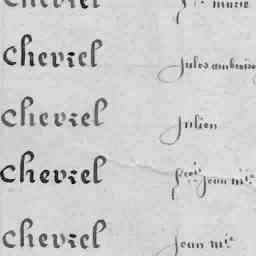 chevrel fs. marie
chevrel Jules ambroise
chevrel Julien
chevrel frois. Jean mie.
chevrel Jean mie.